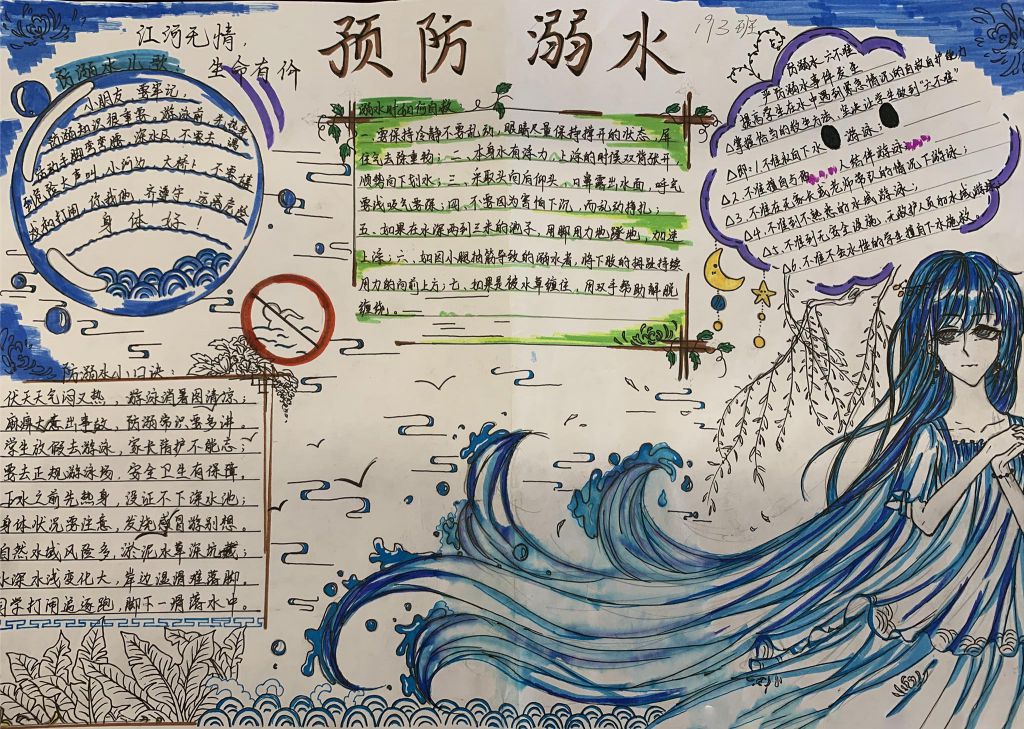 江河无情，
生命有价
预防溺水
193班
防溺水儿歌
小朋友 要牢记，
防溺知识很重要，游泳前 先热身
活动手脚 深水区 不要去 遇
到危险大声叫 小河边 大桥上 不要
打闹 你我他 齐遵守 远离危险
身体好！
溺水时如何自救
一 要保持冷静不要乱动，眼睛尽量保持撑开的状态，屏
住气去除重物；二、本身水有浮力，上浮的时候双臂张开
顺势向下划水；三、采取头向后仰头，口鼻露出水面，呼气
要浅吸气要深；四、不要因为害怕下沉，而乱动挣扎；
五、如果在水深两到三米的池子，用脚用力地蹬地，加速
上浮；六、如因小腿抽筋导致的溺水者，将下肢的拇趾持续
用力的向前上方；七、如果是被水草缠住，用双手帮助解脱
缠绕。
防溺水六不准
严防溺水事件发生
提高学生在水中遇到紧急情况的自救自护能力
△掌握恰当的救生方法，坚决让学生做到“六不准”
△即：1.不准私自下水游泳；
△2.不准擅自与他人结伴游泳
△3.不准在无家长或老师带队的情况下游泳；
△4.不准到不熟悉的水域游泳；
△5.不准到无安全设施、无救护人员的水域游泳
△6.不准不会水性的学生擅自下水施救。
防溺水小口诀：
伏天天气闷又热，游泳消暑图清凉；
麻痹大意出事故，防溺常识要多讲。
学生放假去游泳，家长陪护不能忘；
要去正规游泳场，安全卫生有保障。
下水之前先热身，没证不下深水池；
身体状况需注意，发烧感冒游别想。
自然水域风险多，淤泥水草深坑藏；
水深水浅变化大，岸边湿滑难落脚。
同学打闹追逐跑，脚下一滑落水中。